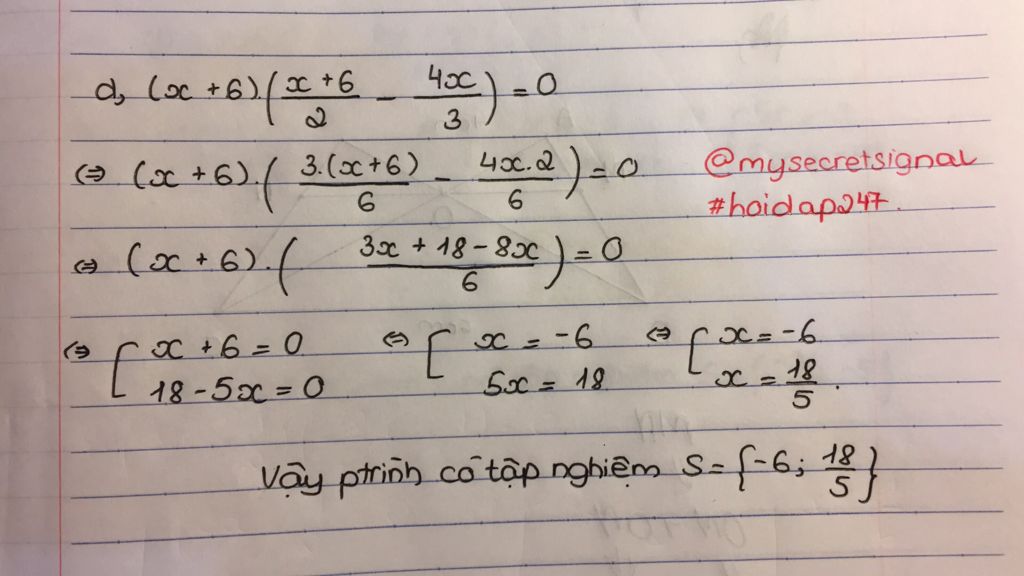 d, (x + 6).(x + 6/2 - 4x/3) = 0
⇔ (x + 6).(3.(x + 6)/6 - 4x.2/6) = 0
@mysecretsignal
#hoidap247.
⇔ (x + 6).(3x + 18 - 8x/6) = 0
⇔ [ x + 6 = 0 ⇔ [ x = -6 ⇔ [ x = -6
18 - 5x = 0 5x = 18 x = 18/5.
Vậy ptrình có tập nghiệm S = {-6; 18/5}